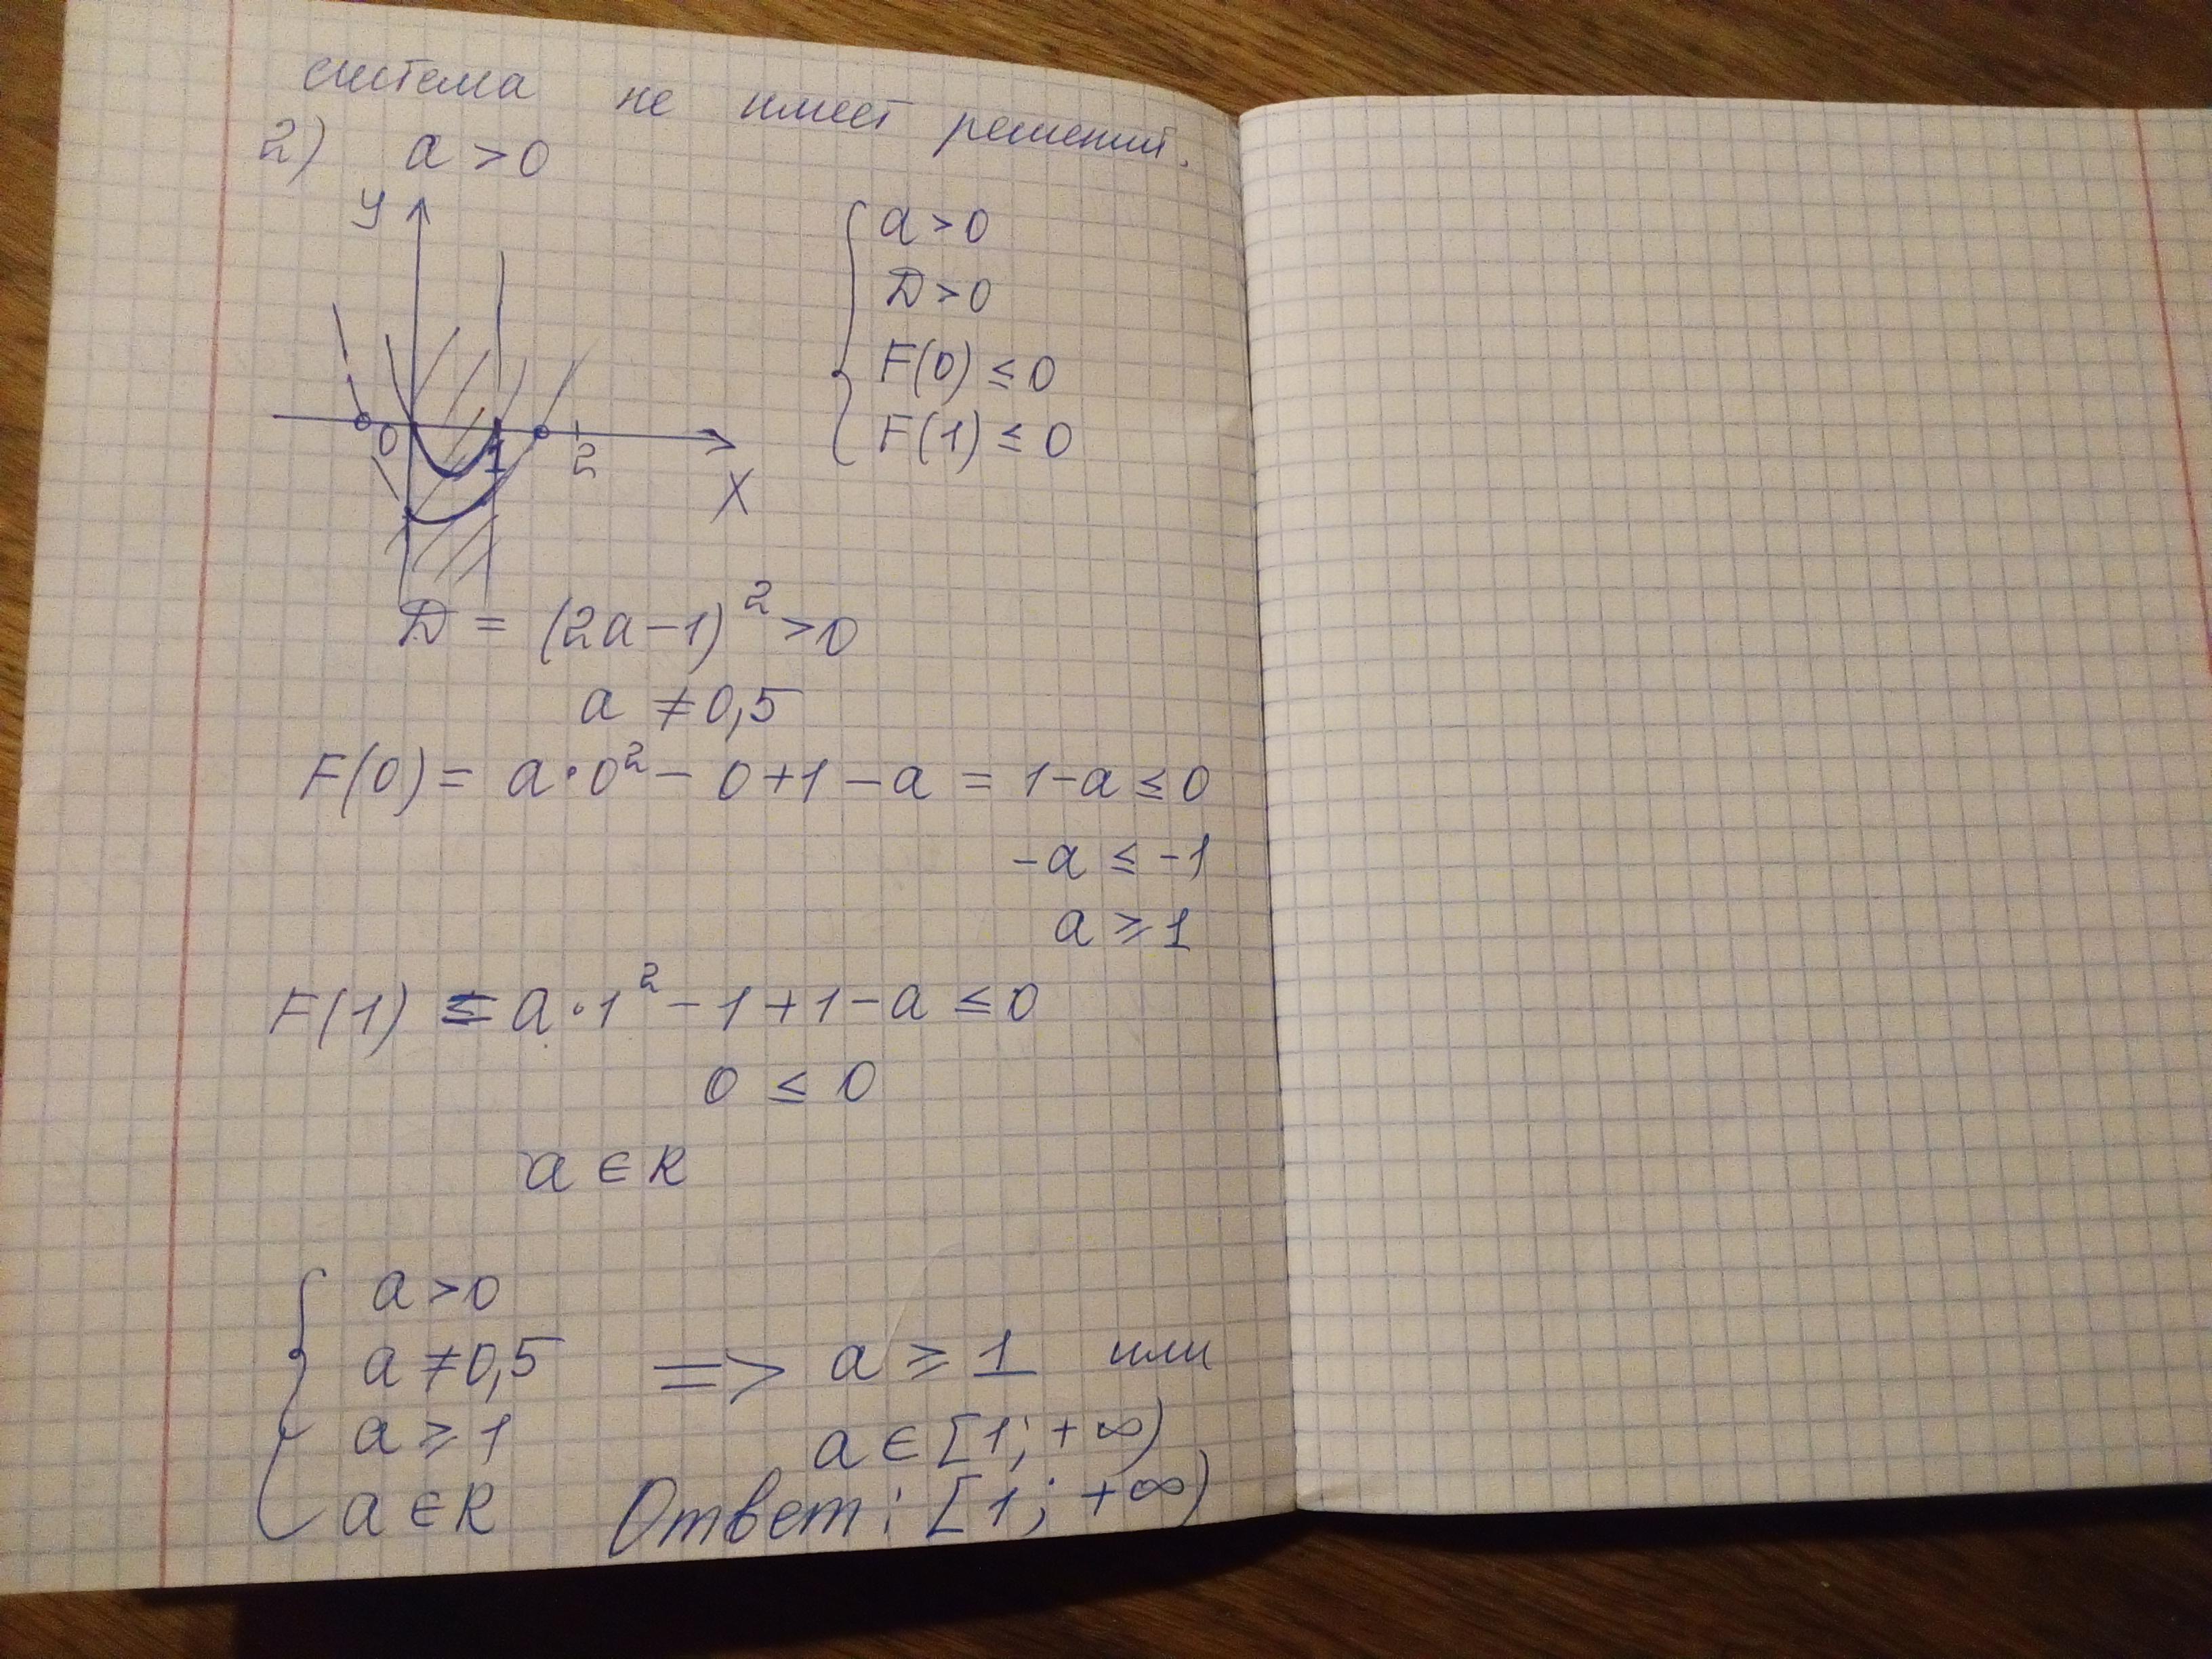 система не имеет решений.
2) a > 0
y
0 1 2
x
a > 0
D > 0
F(0) ≤ 0
F(1) ≤ 0
D = (2a-1)² > 0
a ≠ 0,5
F(0) = a·0² - 0 + 1 - a = 1-a ≤ 0
-a ≤ -1
a ⩾ 1
F(1) = a·1² - 1 + 1 - a ≤ 0
0 ≤ 0
a ∈ R
a > 0
a ≠ 0,5 => a ⩾ 1 или
a ⩾ 1 a ∈ [1; +∞)
a ∈ R Ответ: [1; +∞)